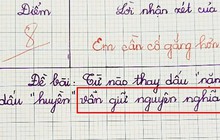 Điểm
Lời nhận xét của
8
Em cần cố gắng hơn
Đề bài: Từ nào thay dấu "nặn
dấu "huyền" vẫn giữ nguyên nghĩa